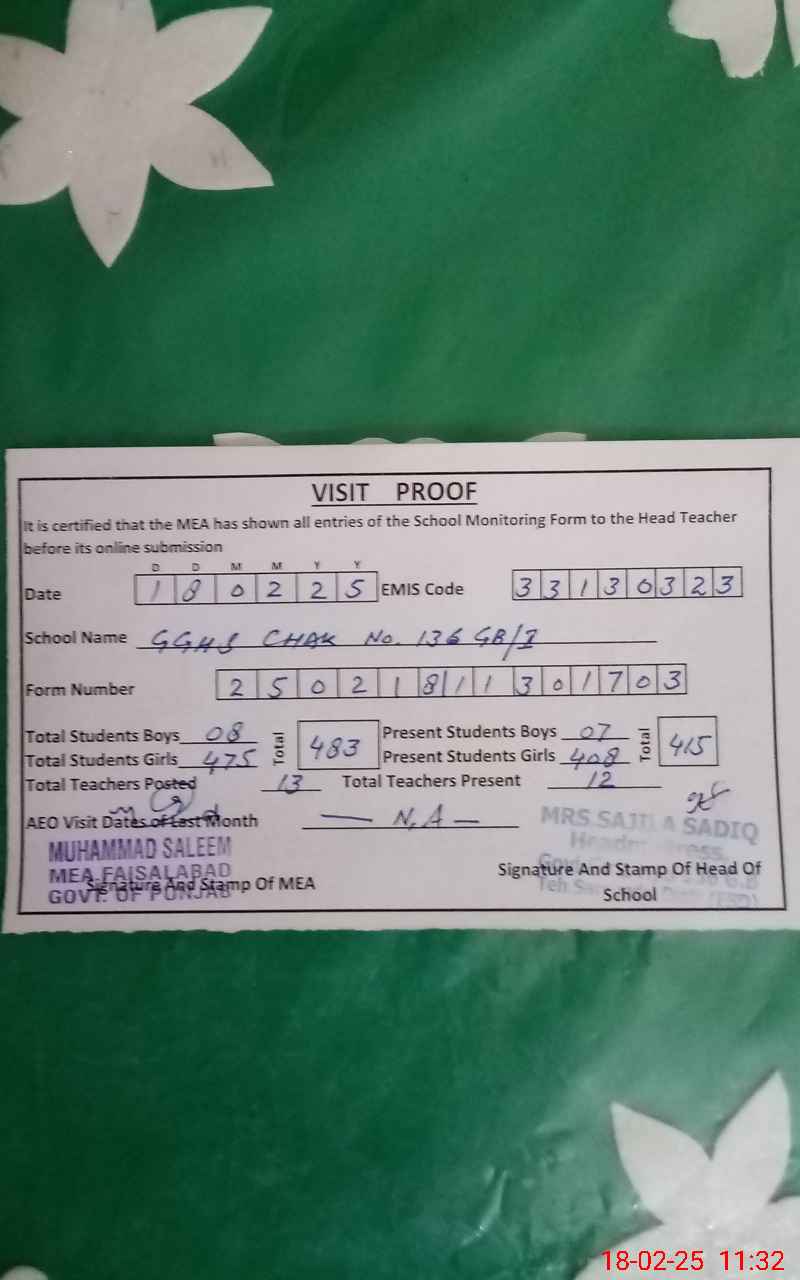 VISIT PROOF
It is certified that the MEA has shown all entries of the School Monitoring Form to the Head Teacher
before its online submission
D D M M Y Y
Date 180225 EMIS Code 33130323
School Name GGHS CHAK No. 136 GB/I
Form Number 25021811301703
Total Students Boys 08 Total 483 Present Students Boys 07 Total 415
Total Students Girls 475 Present Students Girls 408
Total Teachers Posted 13 Total Teachers Present 12
AEO Visit Dates of Last Month — N.A —
MRS. SAJILA SADIQ
MUHAMMAD SALEEM
MEA FAISALABAD
GOVT. OF PUNJAB
Signature And Stamp Of MEA
Signature And Stamp Of Head Of
School
18-02-25 11:32